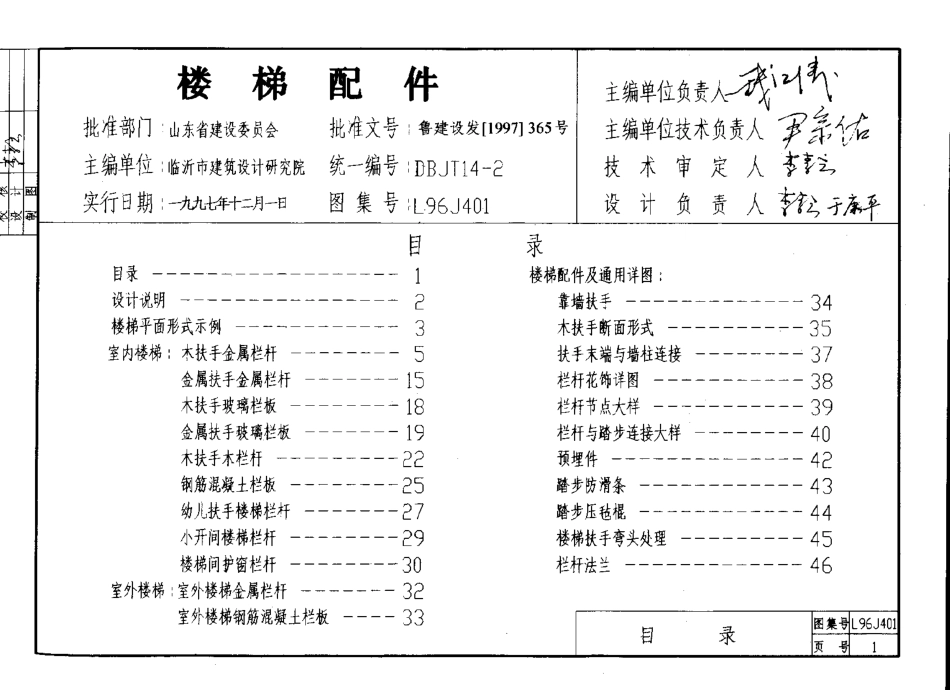 楼梯配件
批准部门：山东省建设委员会 批准文号：鲁建设发[1997]365号
主编单位：临沂市建筑设计研究院 统一编号：DBJT14-2
实行日期：一九九七年十二月一日 图集号：L96J401
主编单位负责人
主编单位技术负责人
技术审定人
设计负责人
目录
目录 1
设计说明 2
楼梯平面形式示例 3
室内楼梯：木扶手金属栏杆 5
金属扶手金属栏杆 15
木扶手玻璃栏板 18
金属扶手玻璃栏板 19
木扶手木栏杆 22
钢筋混凝土栏板 25
幼儿扶手楼梯栏杆 27
小开间楼梯栏杆 29
楼梯间护窗栏杆 30
室外楼梯：室外楼梯金属栏杆 32
室外楼梯钢筋混凝土栏板 33
楼梯配件及通用详图：
靠墙扶手 34
木扶手断面形式 35
扶手末端与墙柱连接 37
栏杆花饰详图 38
栏杆节点大样 39
栏杆与踏步连接大样 40
预埋件 42
踏步防滑条 43
踏步压毡棍 44
楼梯扶手弯头处理 45
栏杆法兰 46
目录
图集号 L96J401
页号 1